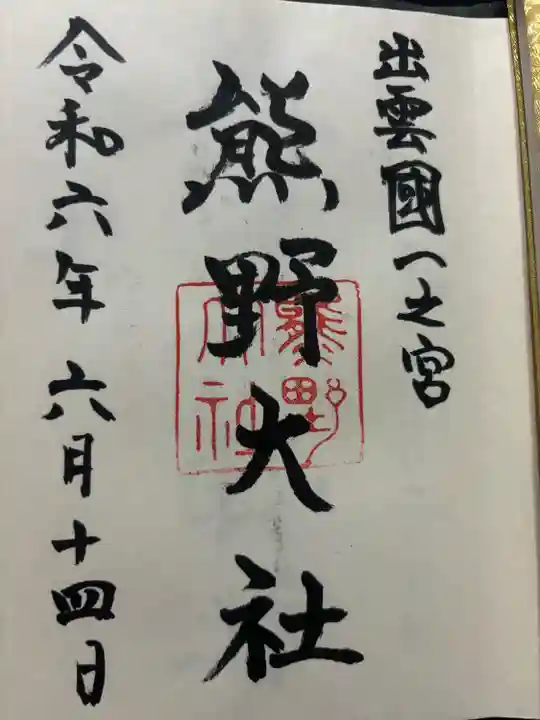 出雲國一之宮
熊野大社
熊野
大社
令和六年六月十四日